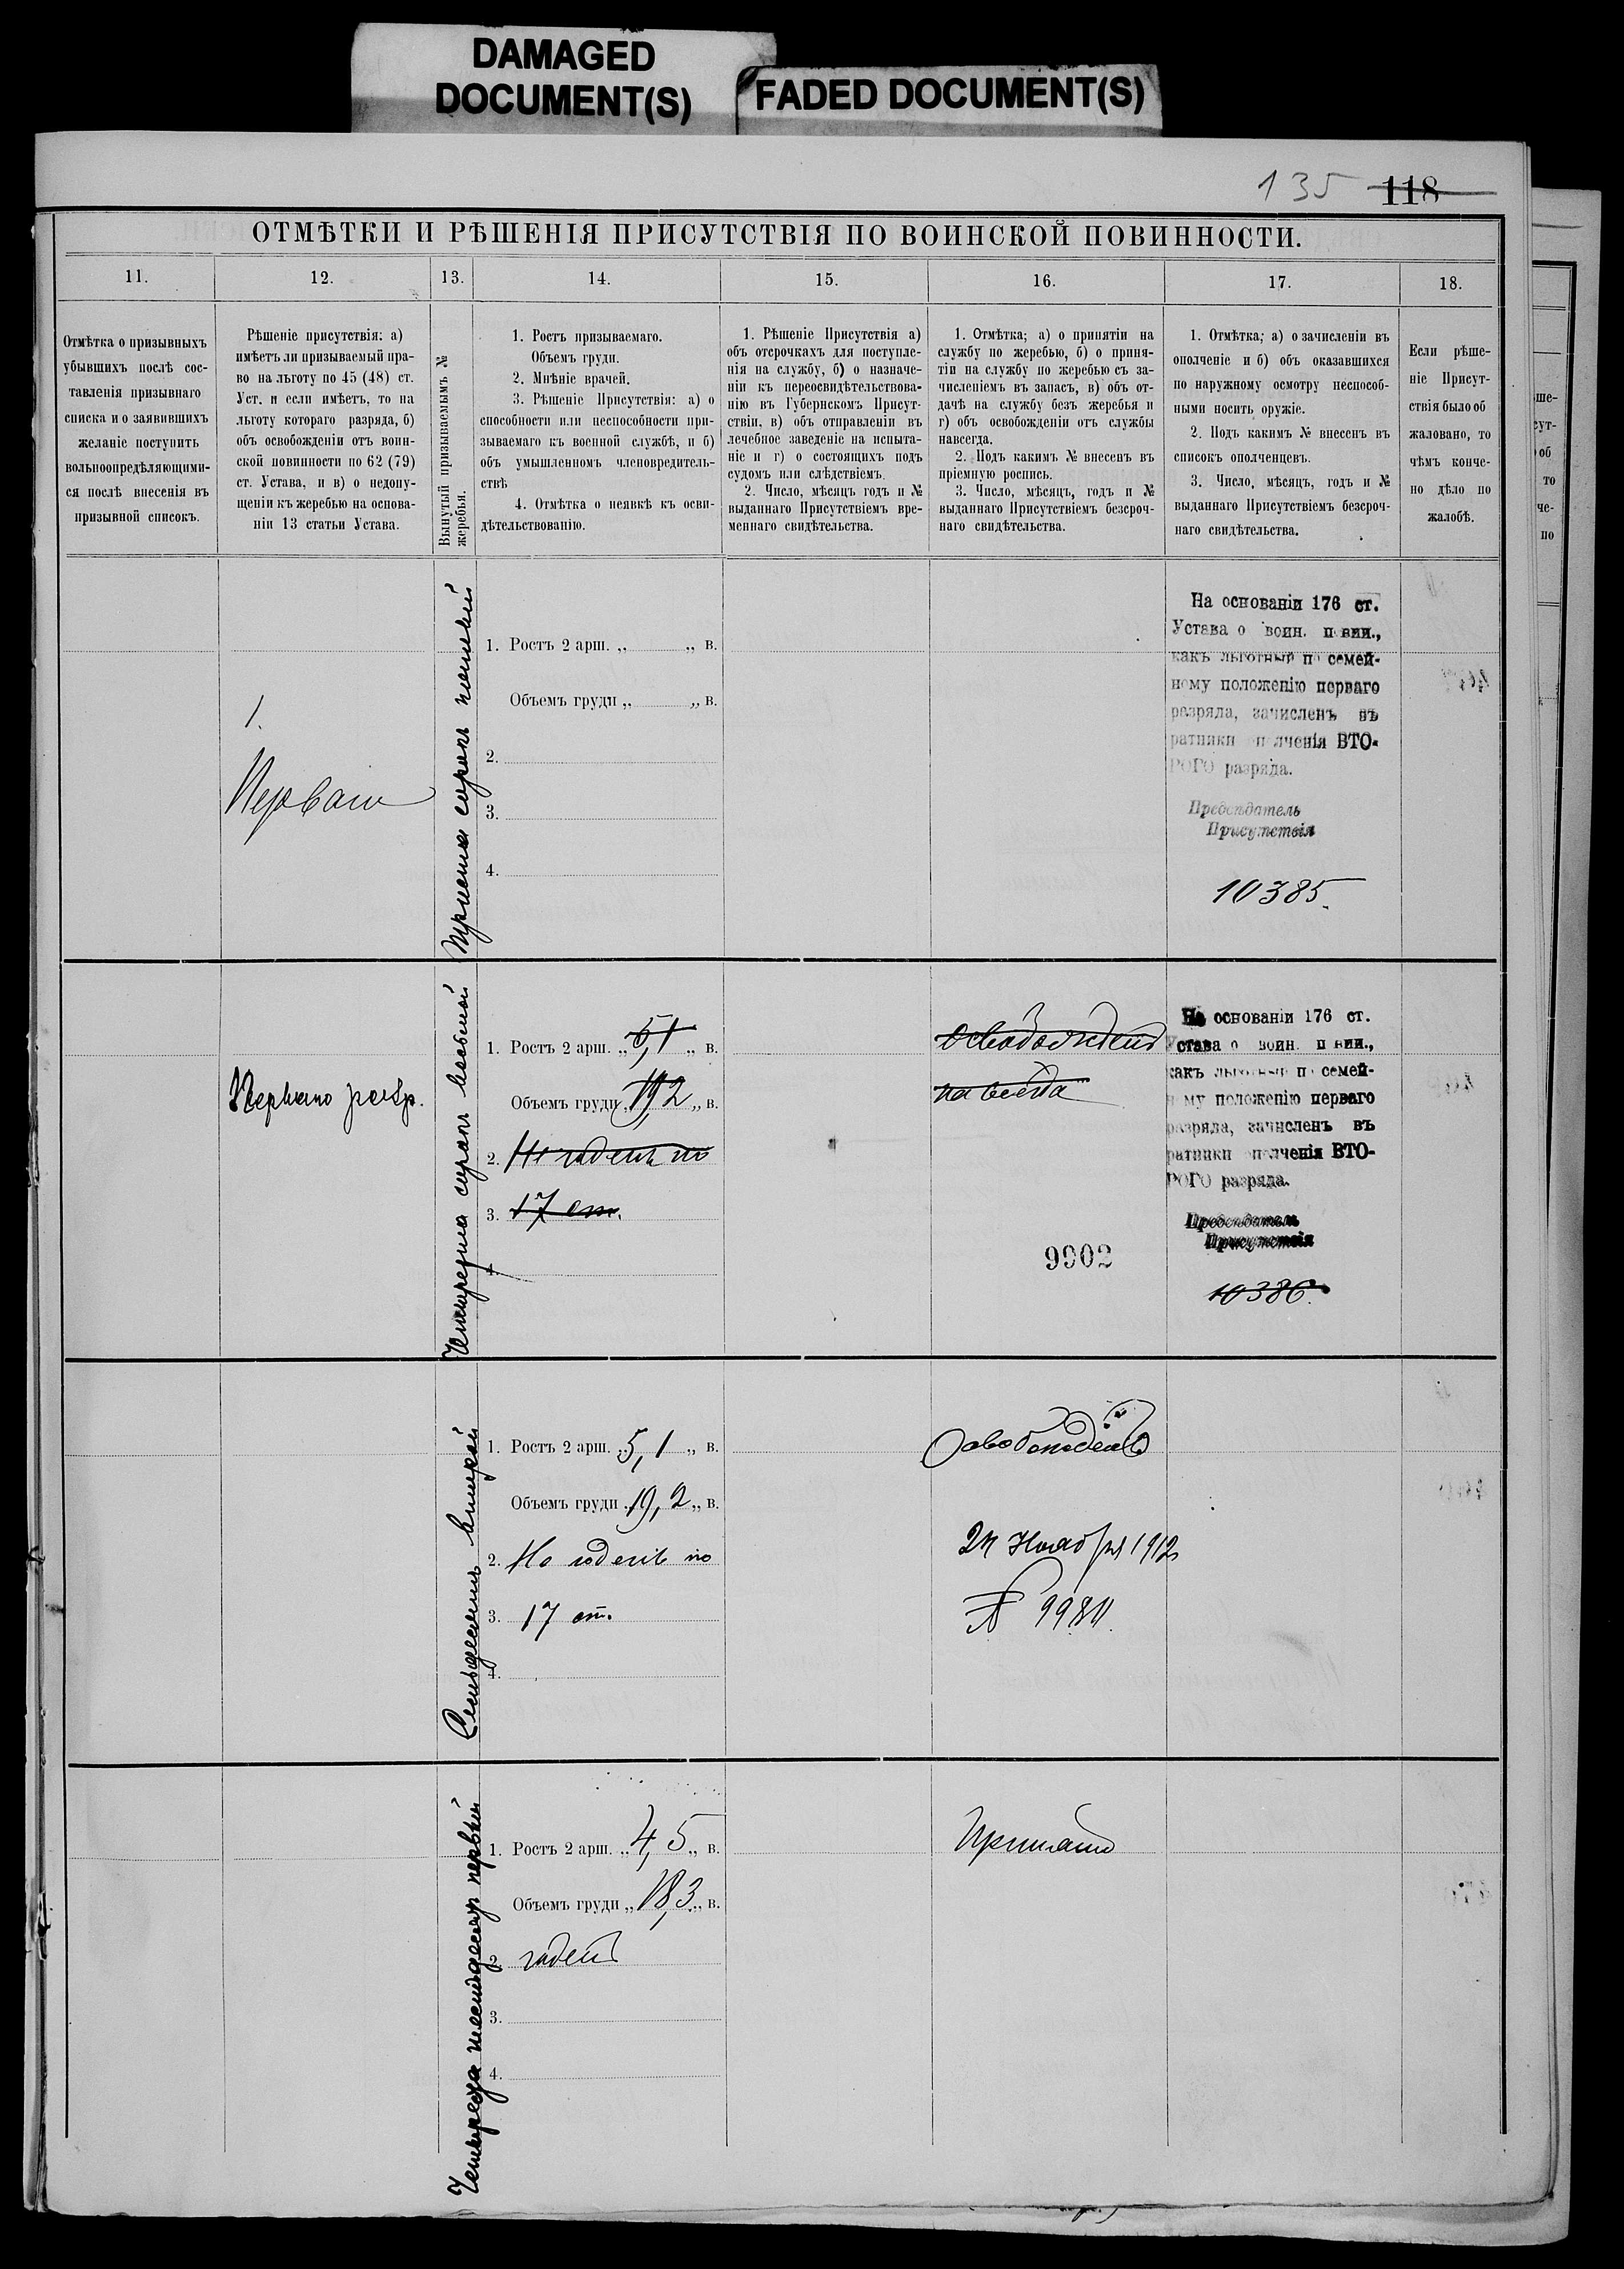 DAMAGED
DOCUMENT(S)
FADED DOCUMENT(S)
135 118
ОТМѢТКИ И РѢШЕНІЯ ПРИСУТСТВІЯ ПО ВОИНСКОЙ ПОВИННОСТИ.
11.
12.
13.
14.
15.
16.
17.
18.
Отмѣтка о призывныхъ
убывшихъ послѣ сос-
тавленія призывнаго
списка и о заявившихъ
желаніе поступить
вольноопредѣляющими-
ся послѣ внесенія въ
призывной списокъ.
Рѣшеніе присутствія: а)
имѣетъ ли призываемый пра-
во на льготу по 45 (48) ст.
Уст. и если имѣетъ, то на
льготу котораго разряда, б)
объ освобожденіи отъ воин-
ской повинности по 62 (79)
ст. Устава, и в) о недопу-
щеніи къ жеребью на основа-
ніи 13 статьи Устава.
Вынутый призываемымъ №
жеребья.
1. Ростъ призываемаго.
Объемъ груди.
2. Мнѣніе врачей.
3. Рѣшеніе Присутствія: а) о
способности или неспособности при-
зываемаго къ военной службѣ, и б)
объ умышленномъ членовредитель-
ствѣ
4. Отмѣтка о неявкѣ къ осви-
дѣтельствованію.
1. Рѣшеніе Присутствія а)
объ отсрочкахъ для поступле-
нія на службу, б) о назначе-
ніи къ переосвидѣтельствова-
нію въ Губернскомъ Присут-
ствіи, в) объ отправленіи въ
лечебное заведеніе на испыта-
ніе и г) о состоящихъ подъ
судомъ или слѣдствіемъ.
2. Число, мѣсяцъ годъ и №
выданнаго Присутствіемъ вре-
меннаго свидѣтельства.
1. Отмѣтка; а) о принятіи на
службу по жеребью, б) о приня-
тіи на службу по жеребью съ за-
численіемъ въ запасъ, в) объ от-
дачѣ на службу безъ жеребья и
г) объ освобожденіи отъ службы
навсегда.
2. Подъ какимъ № внесенъ въ
пріемную роспись.
3. Число, мѣсяцъ, годъ и №
выданнаго Присутствіемъ безсроч-
наго свидѣтельства.
1. Отмѣтка; а) о зачисленіи въ
ополченіе и б) объ оказавшихся
по наружному осмотру неспособ-
ными носить оружіе.
2. Подъ какимъ № внесенъ въ
списокъ ополченцевъ.
3. Число, мѣсяцъ, годъ и №
выданнаго Присутствіемъ безсроч-
наго свидѣтельства.
Если рѣше-
ніе Присут-
ствія было об
жаловано, то
чѣмъ конче-
но дѣло по
жалобѣ.
1.
Первый
Триста сорокъ
1. Ростъ 2 арш. „ „ в.
Объемъ груди „ „ в.
2.
3.
4.
На основаніи 176 ст.
Устава о воин. повин.,
какъ льготный по семей-
ному положенію перваго
разряда, зачисленъ въ
ратники ополченія ВТО-
РОГО разряда.
Предсѣдатель
Присутствія
10385.
Перваго разр.
Четыреста сорокъ восьмой
1. Ростъ 2 арш. „ 5,1 „ в.
Объемъ груди „ 19,2 „ в.
2. Не годенъ по
3. 17 ст.
4.
Освобожденъ
навсегда
9902
На основаніи 176 ст.
Устава о воин. повин.,
какъ льготный по семей-
ному положенію перваго
разряда, зачисленъ въ
ратники ополченія ВТО-
РОГО разряда.
Предсѣдатель
Присутствія
10386.
Семьдесятъ второй
1. Ростъ 2 арш. „ 5,1 „ в.
Объемъ груди „ 19,2 „ в.
2. Не годенъ по
3. 17 ст.
4.
Освобожденъ
Ноября 1912
№
Четыреста шестьдесятъ первый
1. Ростъ 2 арш. „ 4,5 „ в.
Объемъ груди „ 18,3 „ в.
2. годенъ
3.
4.
Принятъ